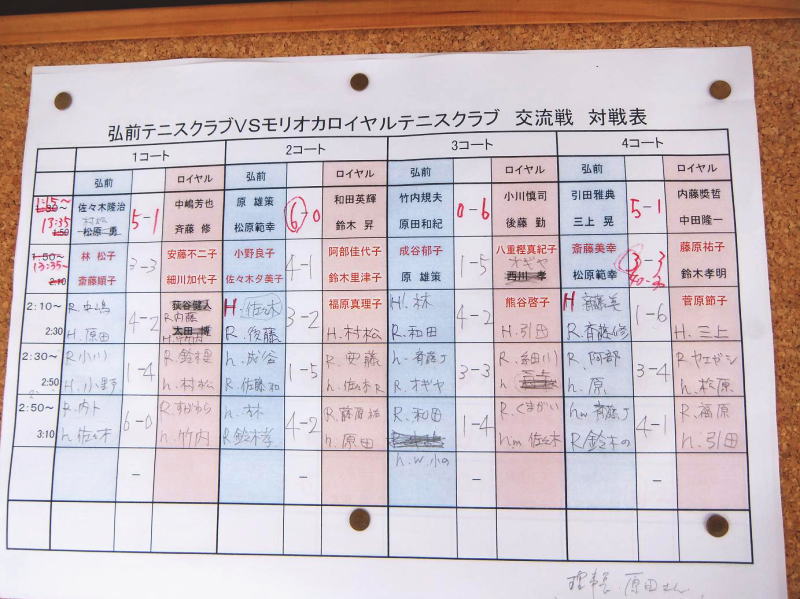 弘前テニスクラブVSモリオカロイヤルテニスクラブ 交流戦 対戦表
1コート 2コート 3コート 4コート
弘前 ロイヤル 弘前 ロイヤル 弘前 ロイヤル 弘前 ロイヤル
1:15~ 佐々木隆治 中嶋芳也 原 雄策 和田英輝 竹内規夫 小川慎司 引田雅典 内藤奬哲
13:35 村松 5-1 6-0 0-6 5-1
1:50 松原二勇 斉藤 修 松原範幸 鈴木 昇 原田和紀 後藤 勤 三上 晃 中田隆一
1:50~ 林 松子 安藤不二子 小野良子 阿部佳代子 成谷郁子 八重樫真紀子 斎藤美幸 藤原祐子
13:35~ 3-3 4-1 1-5 オギヤ 3-3
2:10 斎藤順子 細川加代子 佐々木夕美子 鈴木里津子 原 雄策 西川 孝 松原範幸 40-30 鈴木孝明
2:10~ R.中嶋 荻谷健人 H.佐々木 福原真理子 H.林 熊谷啓子 H 斎藤美 菅原節子
4-2 R.内藤 3-2 4-2 1-6
2:30 H.原田 太田 博 R.後藤 H.村松 R.和田 H.引田 R.斉藤修 H.三上
2:30~ R.小川 R.鈴木里 h.成谷 R.安藤 h.斉藤J R.細川 R.阿部 R.ヤエガシ
1-4 1-5 3-3 3-4
2:50 H.小野 h.村松 R.佐藤和 h.佐々木R R.オギヤ h h.原 h.松原
2:50~ R.内ト R.すがわら h.林 R.藤原祐 R.和田 R.くまがい hw斉藤J R.福原
6-0 4-2 1-4 4-1
3:10 h.佐々木 h.竹内 R鈴木孝 h.原田 hm佐々木 R.鈴木の h.引田
- - h.w.小の - -
理事長 原田さん